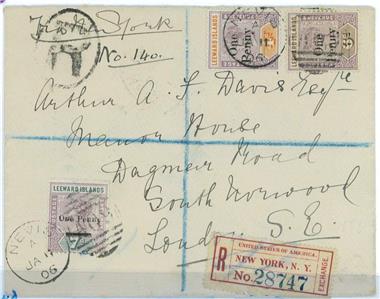 Via New York
R
No. 140.
NEVIS
LEEWARD ISLANDS
One Penny
LEEWARD ISLANDS
One Penny
Arthur A. F. Davis Esqre
Manor House
Dagmar Road
South Norwood
London S. E.
LEEWARD ISLANDS
One Penny
7d
NEVIS
A
JA
06
R
UNITED STATES OF AMERICA.
NEW YORK, N. Y.
No. 28747
EXCHANGE.